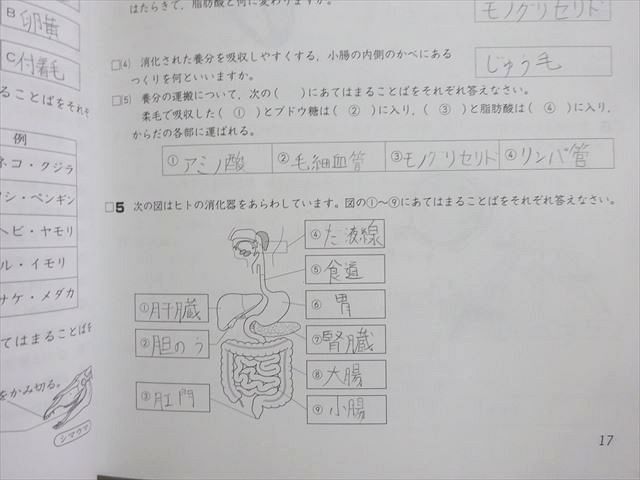 B 卵黄
C 付着毛
ることばをそれぞ
例
ネコ・クジラ
シ・ペンギン
ヘビ・ヤモリ
ル・イモリ
サケ・メダカ
てはまることばを
をかみ切る。
シマウマ
はたらきで，脂肪酸と何に変わりますか。
モノグリセリド
□(4) 消化された養分を吸収しやすくする，小腸の内側のかべにある
つくりを何といいますか。
じゅう毛
□(5) 養分の運搬について，次の（　）にあてはまることばをそれぞれ答えなさい。
柔毛で吸収した（ ① ）とブドウ糖は（ ② ）に入り，（ ③ ）と脂肪酸は（ ④ ）に入り，
からだの各部に運ばれる。
①アミノ酸 ②毛細血管 ③モノグリセリド ④リンパ管
□5 次の図はヒトの消化器をあらわしています。図の①～⑨にあてはまることばをそれぞれ答えなさい。
④だ液線
⑤食道
①肝臓
⑥胃
②胆のう
⑦腎臓
⑧大腸
③肛門
⑨小腸
17